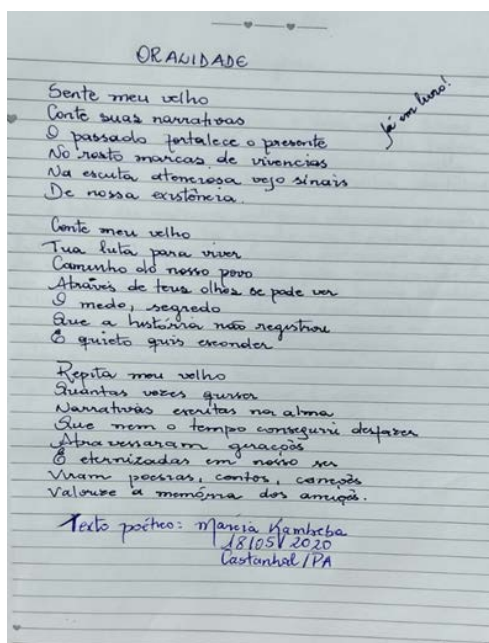 ORALIDADE
já em livro!
Sente meu velho
Conte suas narrativas
O passado fortalece o presente
No rosto marcas de vivencias
Na escuta atenciosa vejo sinais
De nossa existência.
Conte meu velho
Tua luta para viver
Caminho do nosso povo
Através de teus olhos se pode ver
O medo, segredo
Que a história não registrou
E quieto quis esconder
Repita meu velho
Quantas vezes quiser
Narrativas escritas na alma
Que nem o tempo conseguiu desfazer
Atravessaram gerações
E eternizadas em nosso ser
Viram poesias, contos, canções
Valorize a memória dos
Texto poético: Marcia Kambeba
18/05/2020
Castanhal/PA